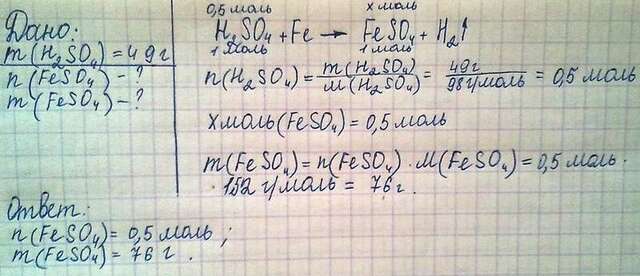 Дано:
m(H₂SO₄)=49г
n(FeSO₄)-?
m(FeSO₄)-?
0,5 моль x моль
H₂SO₄+Fe → FeSO₄+H₂↑
1 моль 1 моль
n(H₂SO₄)= m(H₂SO₄)/M(H₂SO₄) = 49г/98г/моль = 0,5 моль
x моль(FeSO₄)=0,5 моль
m(FeSO₄)=n(FeSO₄)·M(FeSO₄)=0,5 моль·
·152 г/моль = 76г.
Ответ:
n(FeSO₄)=0,5 моль;
m(FeSO₄)=76 г.